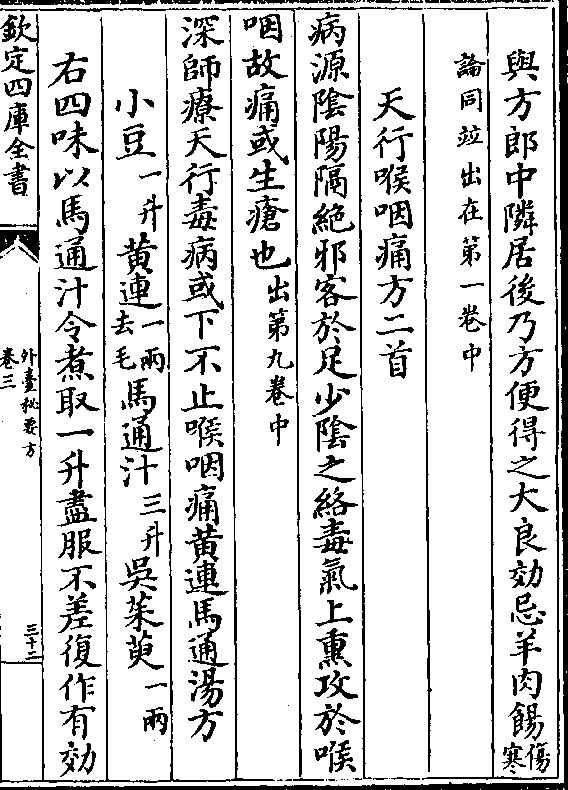 與方郎中隣居後乃方便得之大良効忌羊肉餳傷寒
論同並出在第一卷中
天行喉咽痛方二首
病源陰陽隔絶邪客於足少陰之絡毒氣上熏攻於喉
咽故痛或生瘡也出第九卷中
深師療天行毒病或下不止喉咽痛黄連馬通湯方
小豆一升黄連一兩去毛馬通汁三升吳茱萸一兩
右四味以馬通汁令煮取一升盡服不差復作有効
欽定四庫全書
外臺秘要方
卷三
三十二